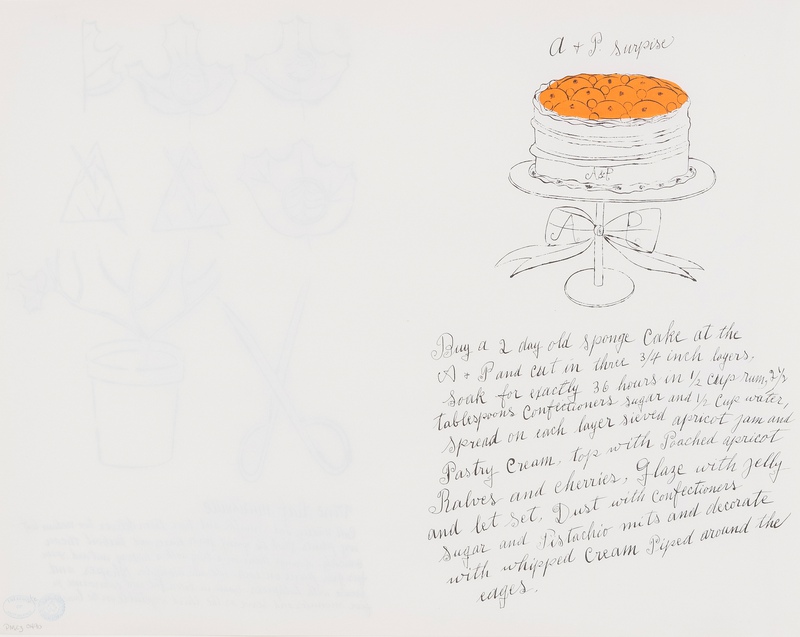 A & P. Surpise
A&P.
A P.
Buy a 2 day old sponge cake at the
A & P and cut in three 3/4 inch layers.
Soak for exactly 36 hours in 1/2 cup rum, 2 1/2
tablespoons Confectioners sugar and 1/2 cup water,
Spread on each layer sieved apricot jam and
Pastry Cream, top with Poached apricot
Ralves and cherries, Glaze with jelly
and let set. Dust with Confectioners
Sugar and Pistachio nuts and decorate
with whipped Cream Piped around the
edges.